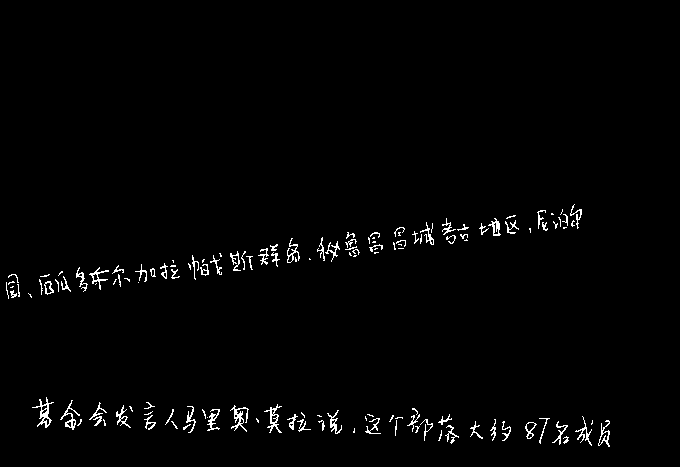 园、厄瓜多尔加拉帕戈斯群岛、秘鲁昌昌城考古地区,尼泊尔
基金会发言人马里奥·莫拉说,这个部落大约87名成员